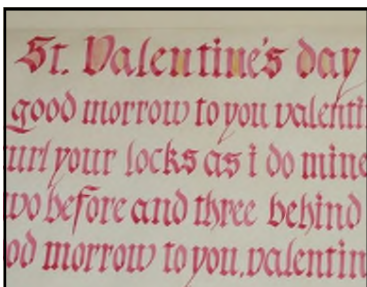 St. Valentine's day
good morrow to you valenti
url your locks as i do mine
wo before and three behind
od morrow to you, valentin